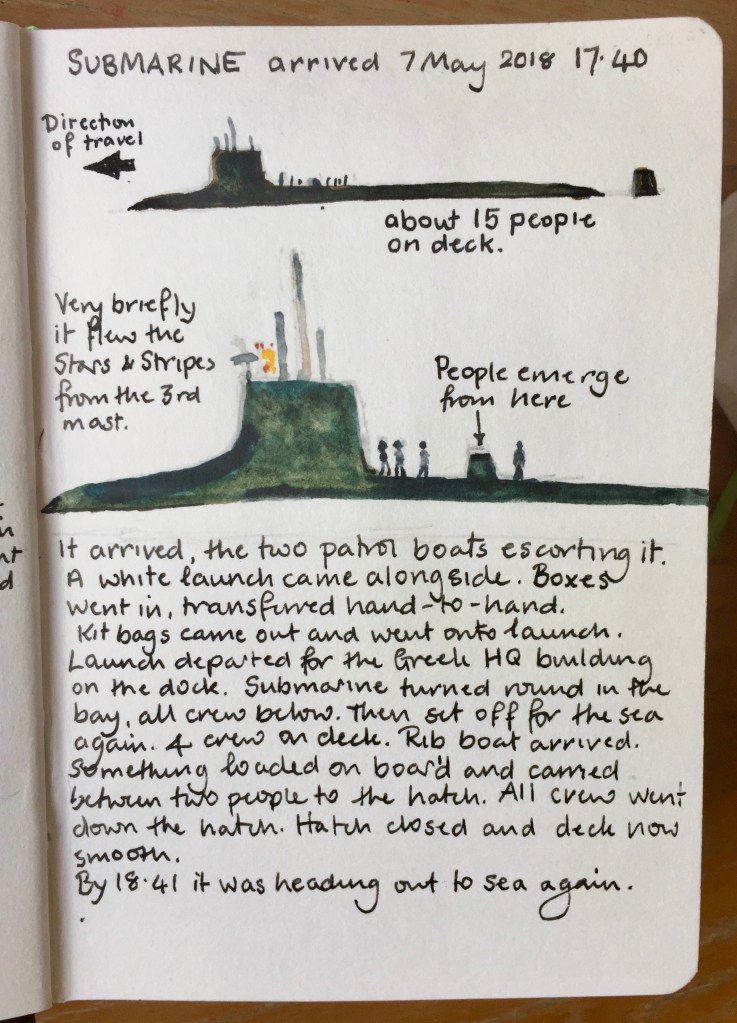 SUBMARINE arrived 7 May 2018 17·40
Direction
of travel
about 15 people
on deck.
Very briefly
it flew the
Stars & Stripes
from the 3rd
mast.
People emerge
from here
It arrived, the two patrol boats escorting it.
A white launch came alongside. Boxes
went in, transfurred hand-to-hand.
Kit bags came out and went onto launch.
Launch departed for the Greek HQ building
on the dock. Submarine turned round in the
bay, all crew below. Then set off for the sea
again. 4 crew on deck. Rib boat arrived.
Something loaded on board and carried
between two people to the hatch. All crew went
down the hatch. Hatch closed and deck now
smooth.
By 18·41 it was heading out to sea again.